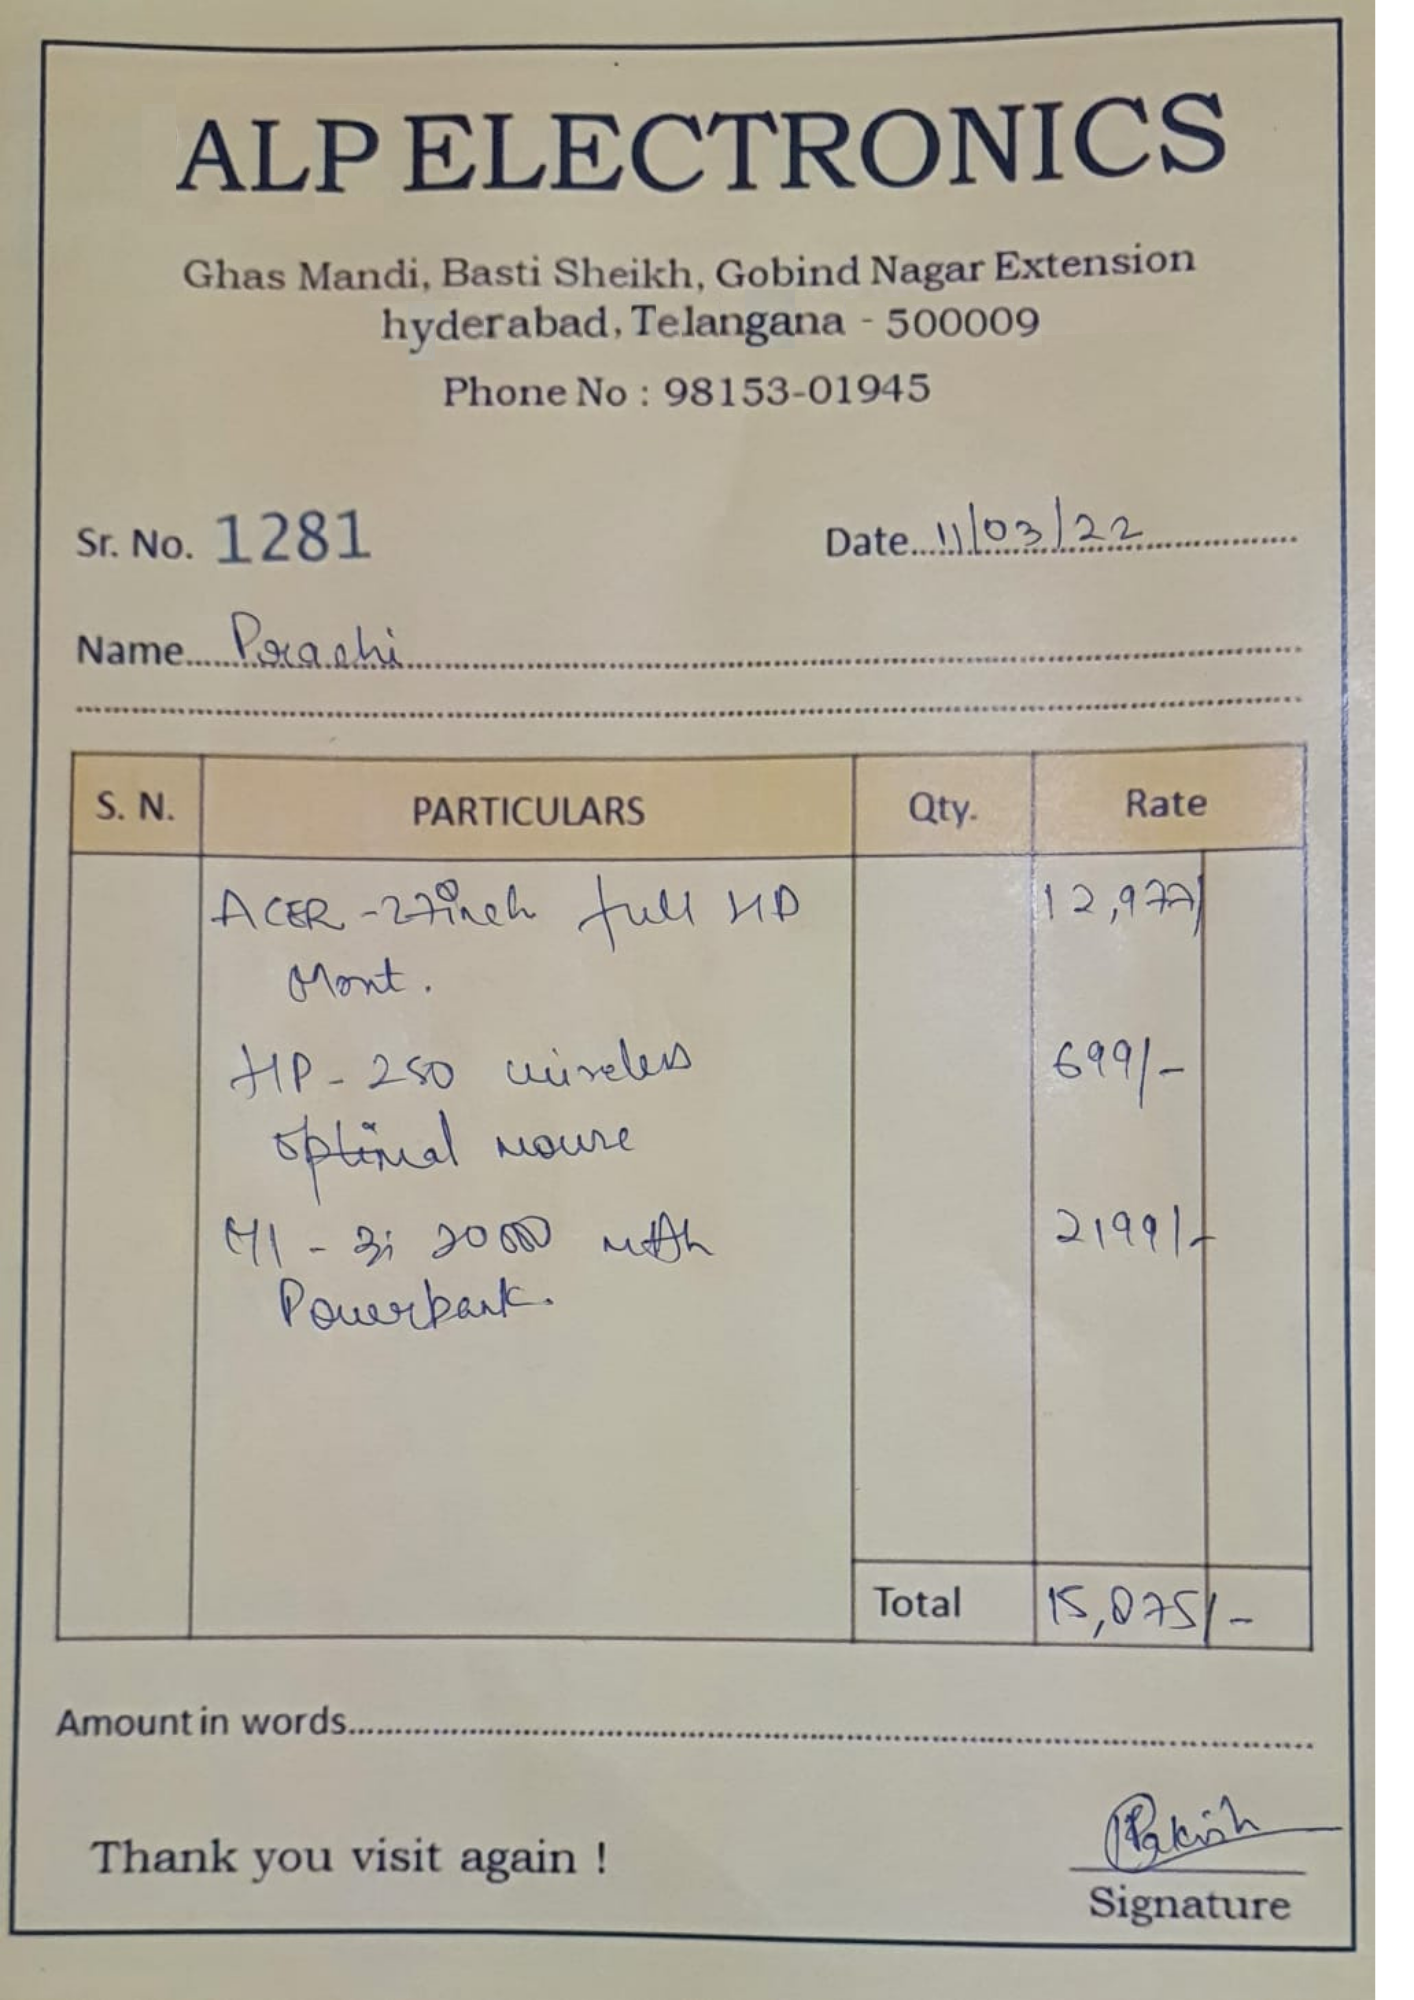 ALP ELECTRONICS
Ghas Mandi, Basti Sheikh, Gobind Nagar Extension
hyderabad, Telangana - 500009
Phone No : 98153-01945
Sr. No. 1281 Date 11/03/22
Name Prachi
S. N. PARTICULARS Qty. Rate
ACER - 27inch full HD 12,977/
Mont.
HP - 250 wireless 699/-
optimal mouse
MI - 3i 20000 mAh 2199/-
Powerbank.
Total 15,875/-
Amount in words
Thank you visit again !
Signature